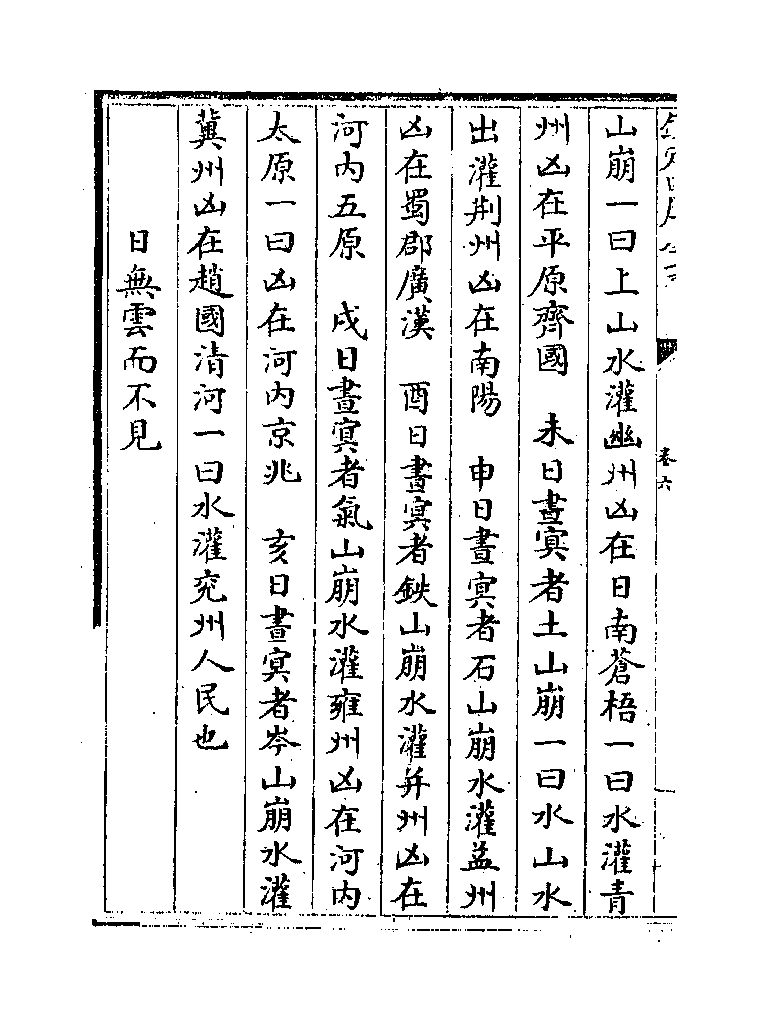 山崩一曰上山水灌幽州凶在日南蒼梧一曰水灌青
州凶在平原齊國　未日晝冥者土山崩一曰水山水
出灌荆州凶在南陽　申日晝冥者石山崩水灌益州
凶在蜀郡廣漢　酉日晝冥者鉄山崩水灌并州凶在
河内五原　戌日晝冥者氣山崩水灌雍州凶在河内
太原一曰凶在河内京兆　亥日晝冥者岑山崩水灌
冀州凶在趙國清河一曰水灌兖州人民也
日無雲而不見
卷六